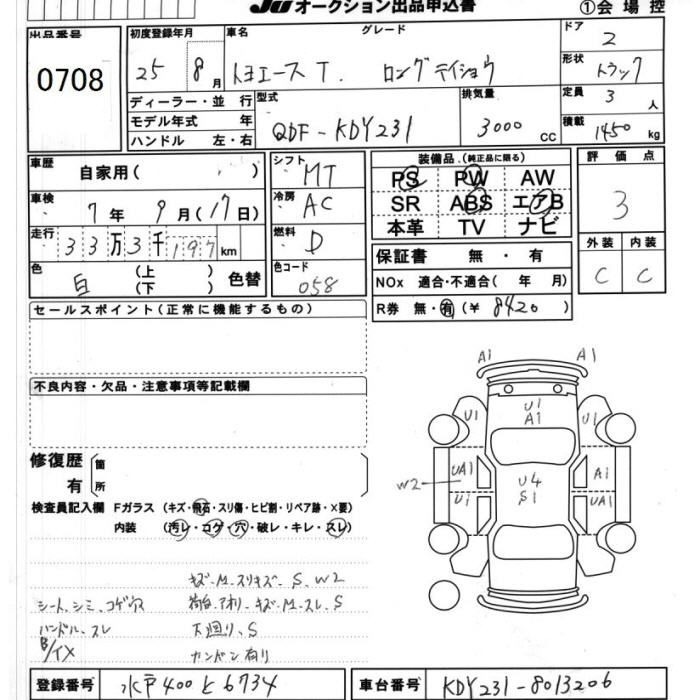 JU オークション出品申込書 ①会場控
出品番号 0708
初度登録年月 25 8月
車名 トヨエースT. グレード ロングテイショウ
ドア 2
形状 トラック
ディーラー・並行
モデル年式 年
ハンドル 左・右
型式 QDF-KDY231
排気量 3000 CC
定員 3人
積載 1450 kg
車歴 自家用( )
車検 7年 9月(17日)
走行 33万3千197km
色 白 (上)(下) 色替
シフト MT
冷房 AC
燃料 D
色コード 058
装備品(純正品に限る)
PS PW AW
SR ABS エアB
本革 TV ナビ
保証書 無・有
NOx 適合・不適合( 年 月)
R券 無・有(¥ 8420)
評価点
3
外装 内装
C C
セールスポイント(正常に機能するもの)
不良内容・欠品・注意事項等記載欄
修復歴 有 箇所
検査員記入欄 Fガラス (キズ・飛石・スリ傷・ヒビ割・リペア跡・×要)
内装 (汚レ・コゲ・穴・破レ・キレ・スレ)
A1 A1
U1 U1 A1 U1
UA1 U4 S1 A1
W2
U1 UA1
キズ、M、スリキズ、S、W2
シート、シミ、コゲ穴 荷台、アオリ、キズ、M、スレ、S
ハンドル、スレ 下廻り、S
B/イX カンバン有り
登録番号 水戸400と6734
車台番号 KDY231-8013206